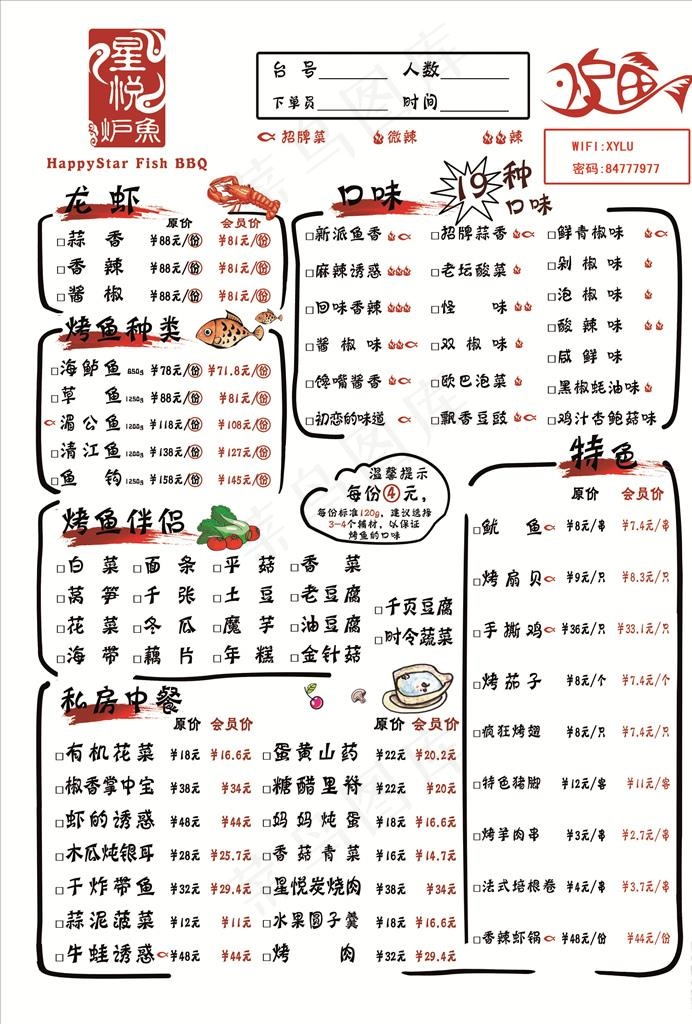 星悦炉魚
HappyStar Fish BBQ
台 号 人数
下单员 时间
招牌菜 微辣 辣
火炉鱼
WIFI:XYLU
密码:84777977
龙虾
原价 会员价
□蒜 香 ¥88元/份 ¥81元/份
□香 辣 ¥88元/份 ¥81元/份
□酱 椒 ¥88元/份 ¥81元/份
烤鱼种类
□海鲈鱼650g ¥78元/份 ¥71.8元/份
□草 鱼1250g ¥88元/份 ¥81元/份
□湄公鱼1200g ¥118元/份 ¥108元/份
□清江鱼1200g ¥138元/份 ¥127元/份
□鱼 钩1250g ¥158元/份 ¥145元/份
口味
19种口味
□新派鱼香 □招牌蒜香 □鲜青椒味
□麻辣诱惑 □老坛酸菜 □剁 椒 味
□回味香辣 □怪 味 □泡 椒 味
□酱 椒 味 □双 椒 味 □酸 辣 味
□咸 鲜 味
□馋嘴酱香 □欧巴泡菜 □黑椒蚝油味
□初恋的味道 □飘香豆豉 □鸡汁杏鲍菇味
温馨提示
每份④元,
每份标准120g, 建议选择
3-4个辅材, 以保证
烤鱼的口味
烤鱼伴侣
□白 菜 □面 条 □平 菇 □香 菜
□莴 笋 □千 张 □土 豆 □老豆腐
□花 菜 □冬 瓜 □魔 芋 □油豆腐
□海 带 □藕 片 □年 糕 □金针菇
□千页豆腐
□时令蔬菜
特色
原价 会员价
□鱿 鱼 ¥8元/串 ¥7.4元/串
□烤扇贝 ¥9元/只 ¥8.3元/只
□手撕鸡 ¥36元/只 ¥33.1元/只
□烤茄子 ¥8元/个 ¥7.4元/个
□疯狂烤翅 ¥8元/只 ¥7.4元/只
□特色猪脚 ¥12元/客 ¥11元/客
□烤羊肉串 ¥3元/串 ¥2.7元/串
□法式培根卷 ¥4元/串 ¥3.7元/串
□香辣虾锅 ¥48元/份 ¥44元/份
私房中餐
原价 会员价 原价 会员价
□有机花菜 ¥18元 ¥16.6元 □蛋黄山药 ¥22元 ¥20.2元
□椒香掌中宝 ¥38元 ¥34元 □糖醋里脊 ¥22元 ¥20元
□虾的诱惑 ¥48元 ¥44元 □妈妈炖蛋 ¥18元 ¥16.6元
□木瓜炖银耳 ¥28元 ¥25.7元 □香菇青菜 ¥16元 ¥14.7元
□干炸带鱼 ¥32元 ¥29.4元 □星悦炭烧肉 ¥38元 ¥34元
□蒜泥菠菜 ¥12元 ¥11元 □水果圆子羹 ¥18元 ¥16.6元
□牛蛙诱惑 ¥48元 ¥44元 □烤 肉 ¥32元 ¥29.4元